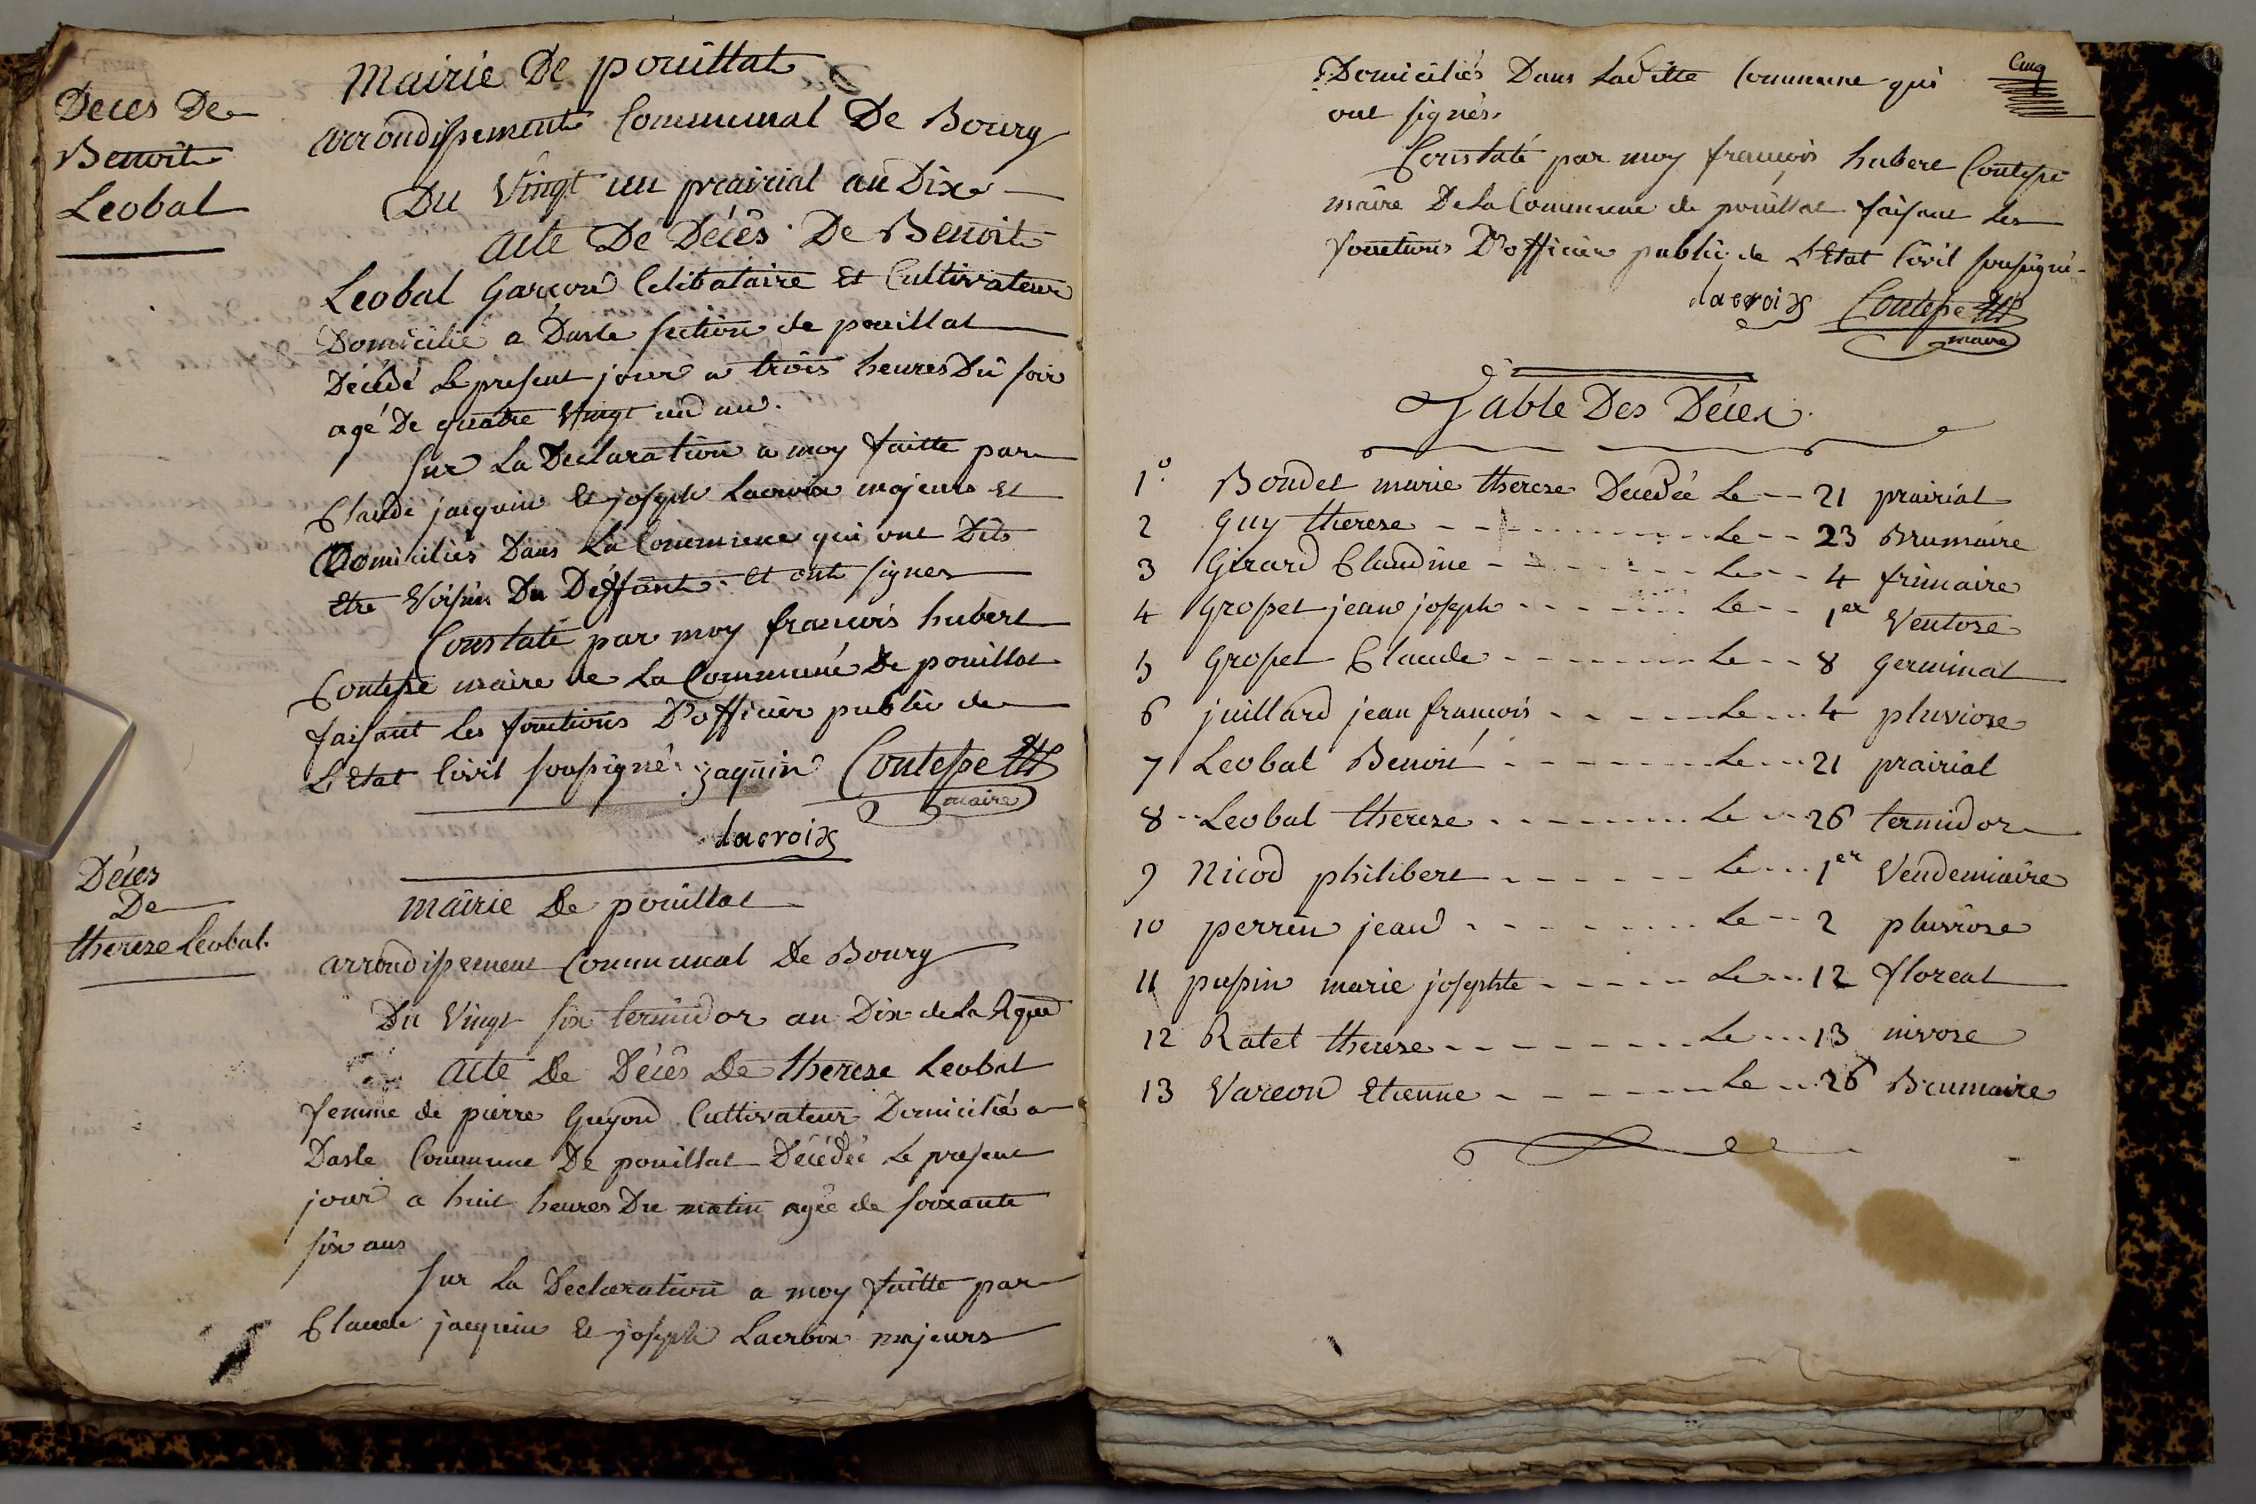 Deces De
Benoit
Leobal
Mairie De pouillat
arrondissement Communal De Bourg
Du Vingt un prairial an Dix
acte De Décês De Benoit
Leobal garçon Celibataire Et Cultivateur
Domicilié a Dasle section de pouillat
Décédé Le present jour a trois heures Du soir
agé De quatre Vingt un an.
Sur La Declaration a moy faitte par
Claude jacquin Et joseph Lacroix majeurs Et
Domiciliés Dans La Commune qui ont Dit
Etre Voisins Du Deffant Et ont signes
Constaté par moy francois hubert
Contesse maire de La Commune De pouillat
faisant les fonctions D'officier public de
L'Etat Civil soussigné jaquin Contesse
maire
lacroix
Déces
De
therese Leobal.
Mairie De pouillat
arrondissement Communal De Bourg
Du Vingt six termidor an Dix de La Rque
acte De Décês De therese Leobal
femme de pierre Guyon Cultivateur Domicilié a
Dasle Commune De pouillat Décédée Le present
jour a huit heures Du matin agée de soixante
six ans
Sur La Declaration a moy faitte par
Claude jacquin Et joseph Lacroix majeurs
Cinq
Domiciliés Dans Laditte Commune qui
ont signés.
Constaté par moy francois hubert Contesse
maire De La Commune de pouillat faisant Les
fonctions D'officier public de L'Etat Civil soussigné
lacroix Contesse
maire
Table Des Déces
1° Bondet marie therese Decedée Le 21 prairial
2 Guy therese Le 23 Brumaire
3 Girard Claudine Le 4 frimaire
4 Grosset jean joseph Le 1er Ventose
5 Grosset Claude Le 8 Germinal
6 juillard jean francois Le 4 pluviose
7 Leobal Benoit Le 21 prairial
8 Leobal therese Le 26 termidor
9 Nicod philibert Le 1er Vendemiaire
10 perrin jean Le 2 pluviose
11 pupin marie josephte Le 12 floreal
12 Ratel therese Le 13 nivose
13 Vareon Etienne Le 26 Brumaire